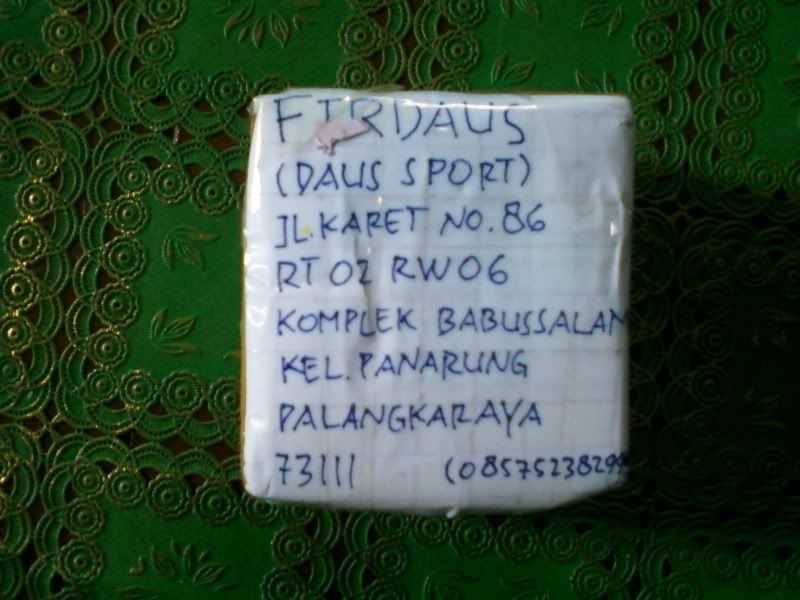 FIRDAUS
(DAUS SPORT)
JL. KARET NO. 86
RT 02 RW 06
KOMPLEK BABUSSALAM
KEL. PANARUNG
PALANGKARAYA
73111 (08575238299